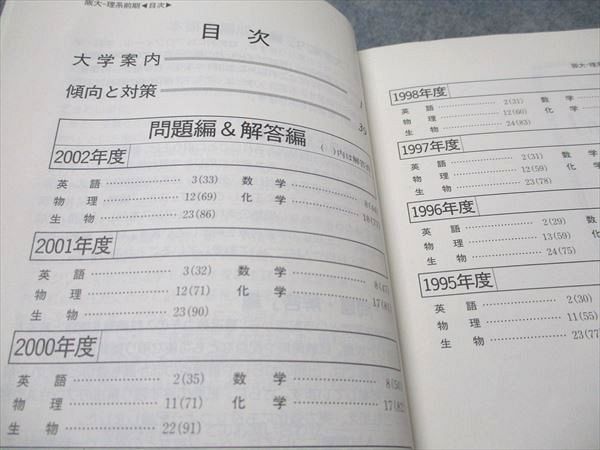 阪大-理系前期◀目次▶
目 次
大学案内
傾向と対策
問題編&解答編
2002年度
英 語 3(33) 数 学
物 理 12(69) 化 学
生 物 23(86)
2001年度
英 語 3(32) 数 学
物 理 12(71) 化 学
生 物 23(90)
2000年度
英 語 2(35) 数 学
物 理 11(71) 化 学 17(82
生 物 22(91)
1998年度
英 語 2(31) 数 学
物 理 12(60) 化 学
生 物 24(83)
1997年度
英 語 2(31) 数
物 理 12(59) 化
生 物 23(78)
1996年度
英 語 2(29) 数
物 理 13(59) 化
生 物 24(75)
1995年度
英 語 2(30)
物 理 11(55)
生 物 23(77